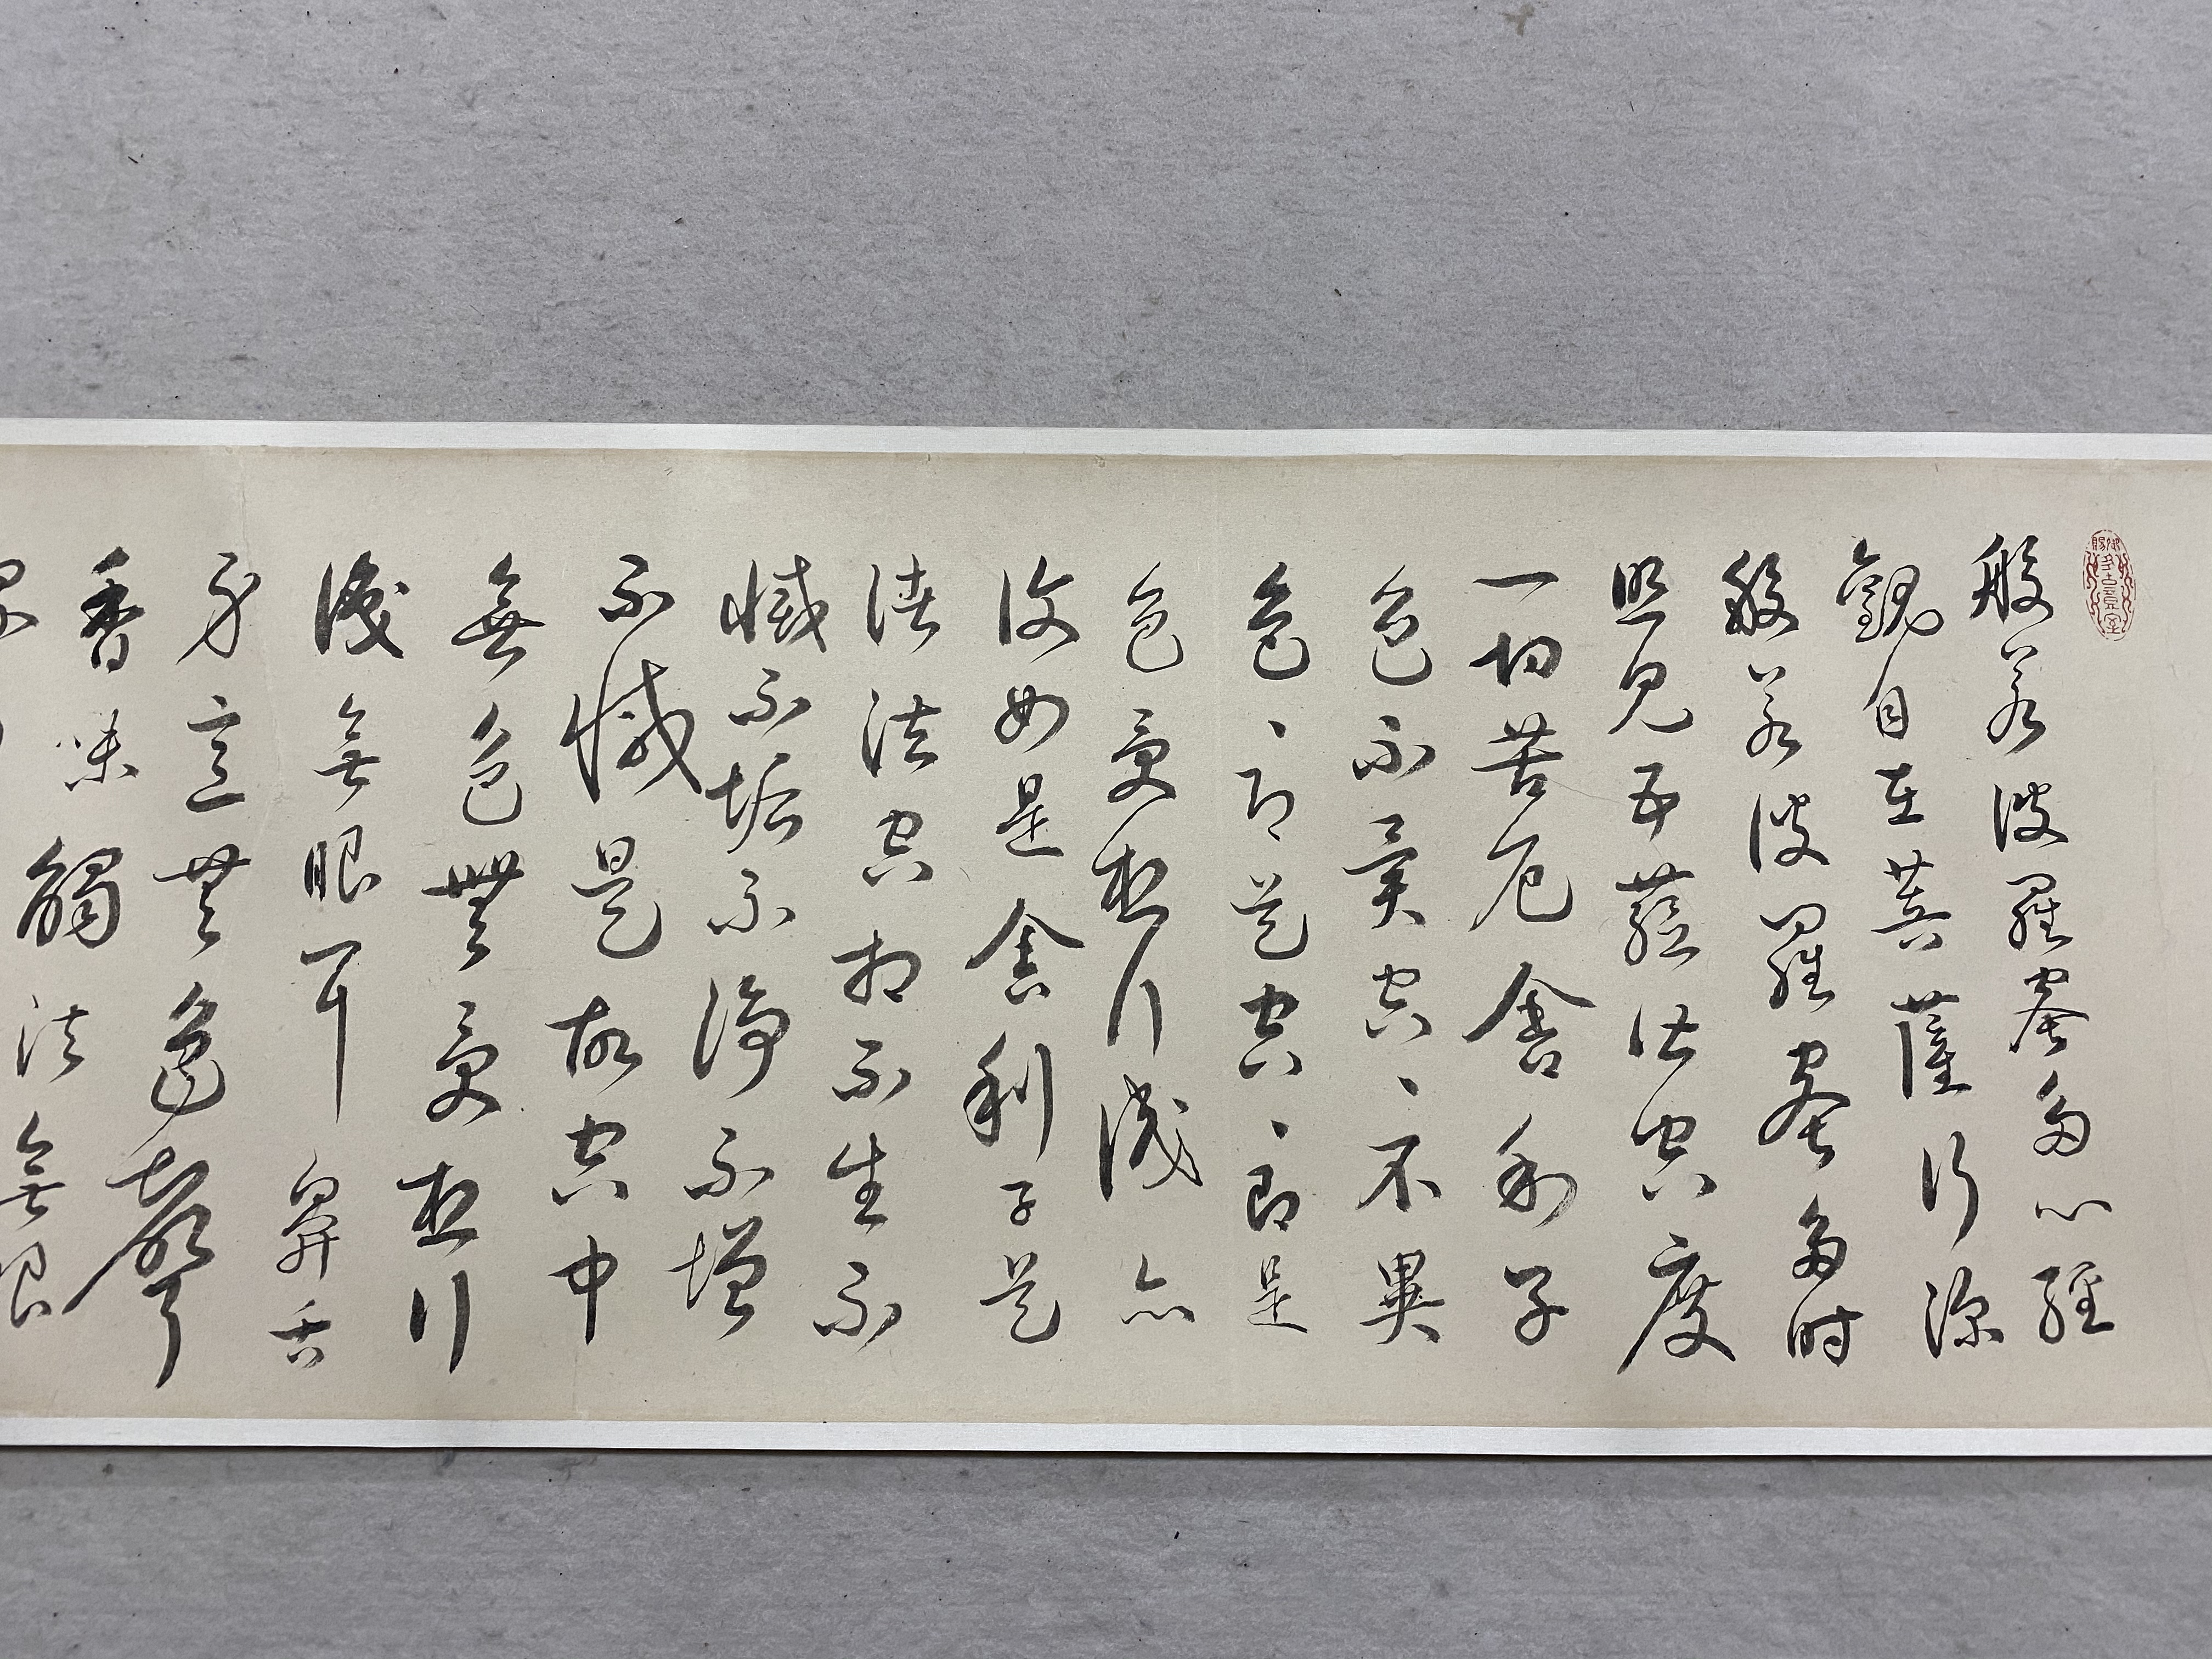 般若波羅蜜多心經
觀自在菩薩行深
般若波羅蜜多時
照見五蘊皆空度
一切苦厄舍利子
色不異空、不異
色、即是空、即是
色受想行識亦
復如是舍利子是
諸法空相不生不
滅不垢不淨不增
不減是故空中
無色無受想行
識無眼耳鼻舌
身意無色聲
香味觸法無眼
界